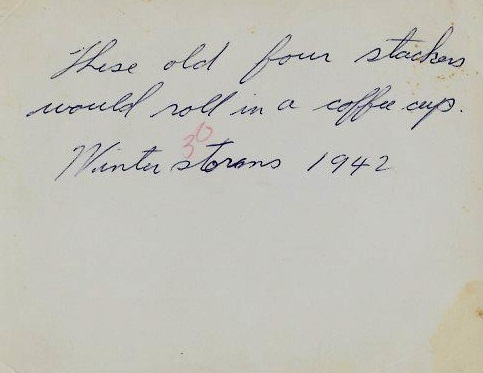 These old four stackers
would roll in a coffee cup.
30
Winter storms 1942